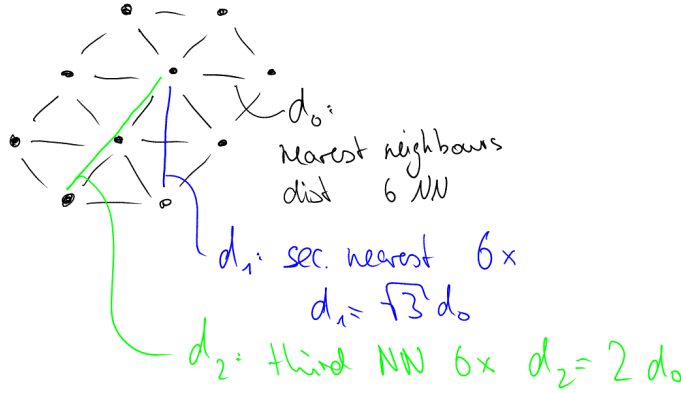 d₀:
nearest neighbours
dist 6 NN
d₁: sec. nearest 6x
d₁= √3 d₀
d₂: third NN 6x d₂= 2 d₀